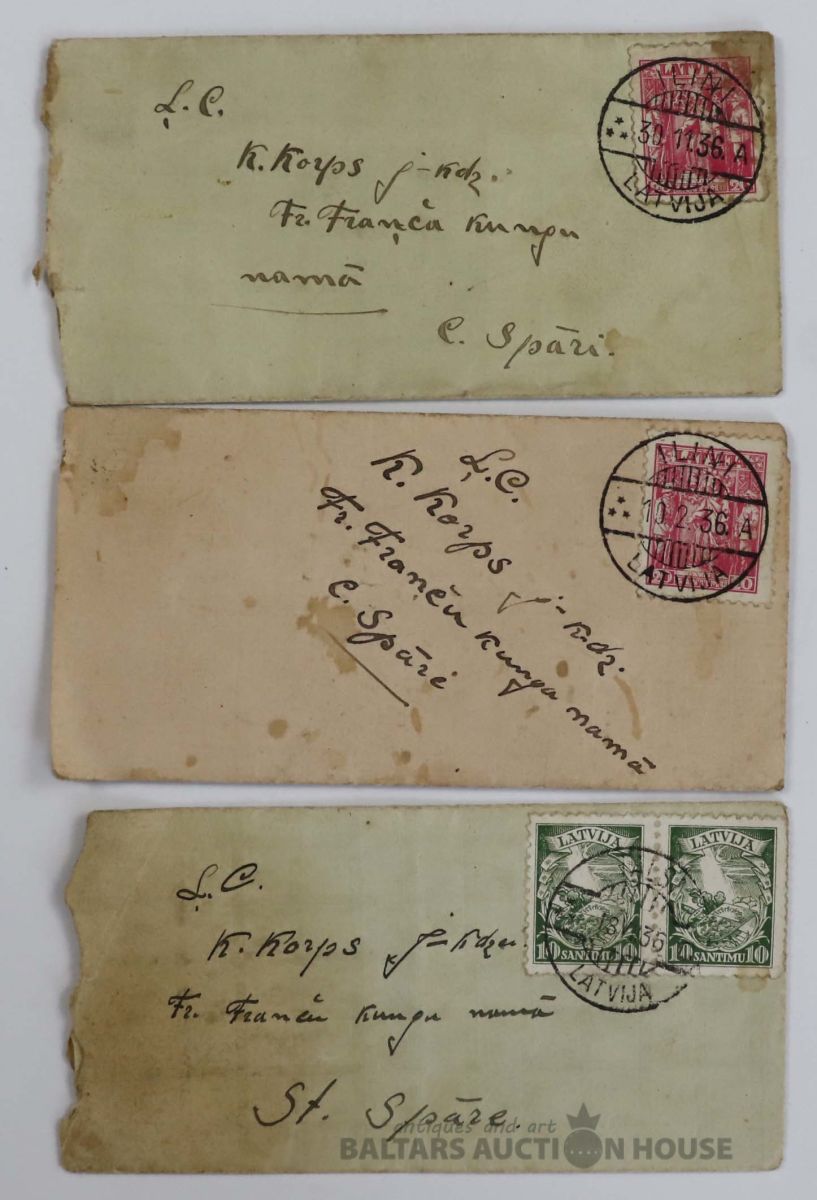 Ļ. C.
K. Korps j-kdz.
Fr. Franča kungu
namā
C. Spāri.
LATVIJA
ILINI
30.11.36. A
LATVIJA
Ļ. C.
K. Korps j-kdz.
Fr. Franču kunga namā
C. Spāri
ILINI
10.2.36. A
LATVIJA
Ļ. C.
K. Korps j-kdzei
Fr. Franču kungu namā
St. Spāre.
LATVIJA LATVIJA
10 SANTIMU 10 10 SANTIMU 10
36
LATVIJA
antiques and art
BALTARS AUCTION HOUSE